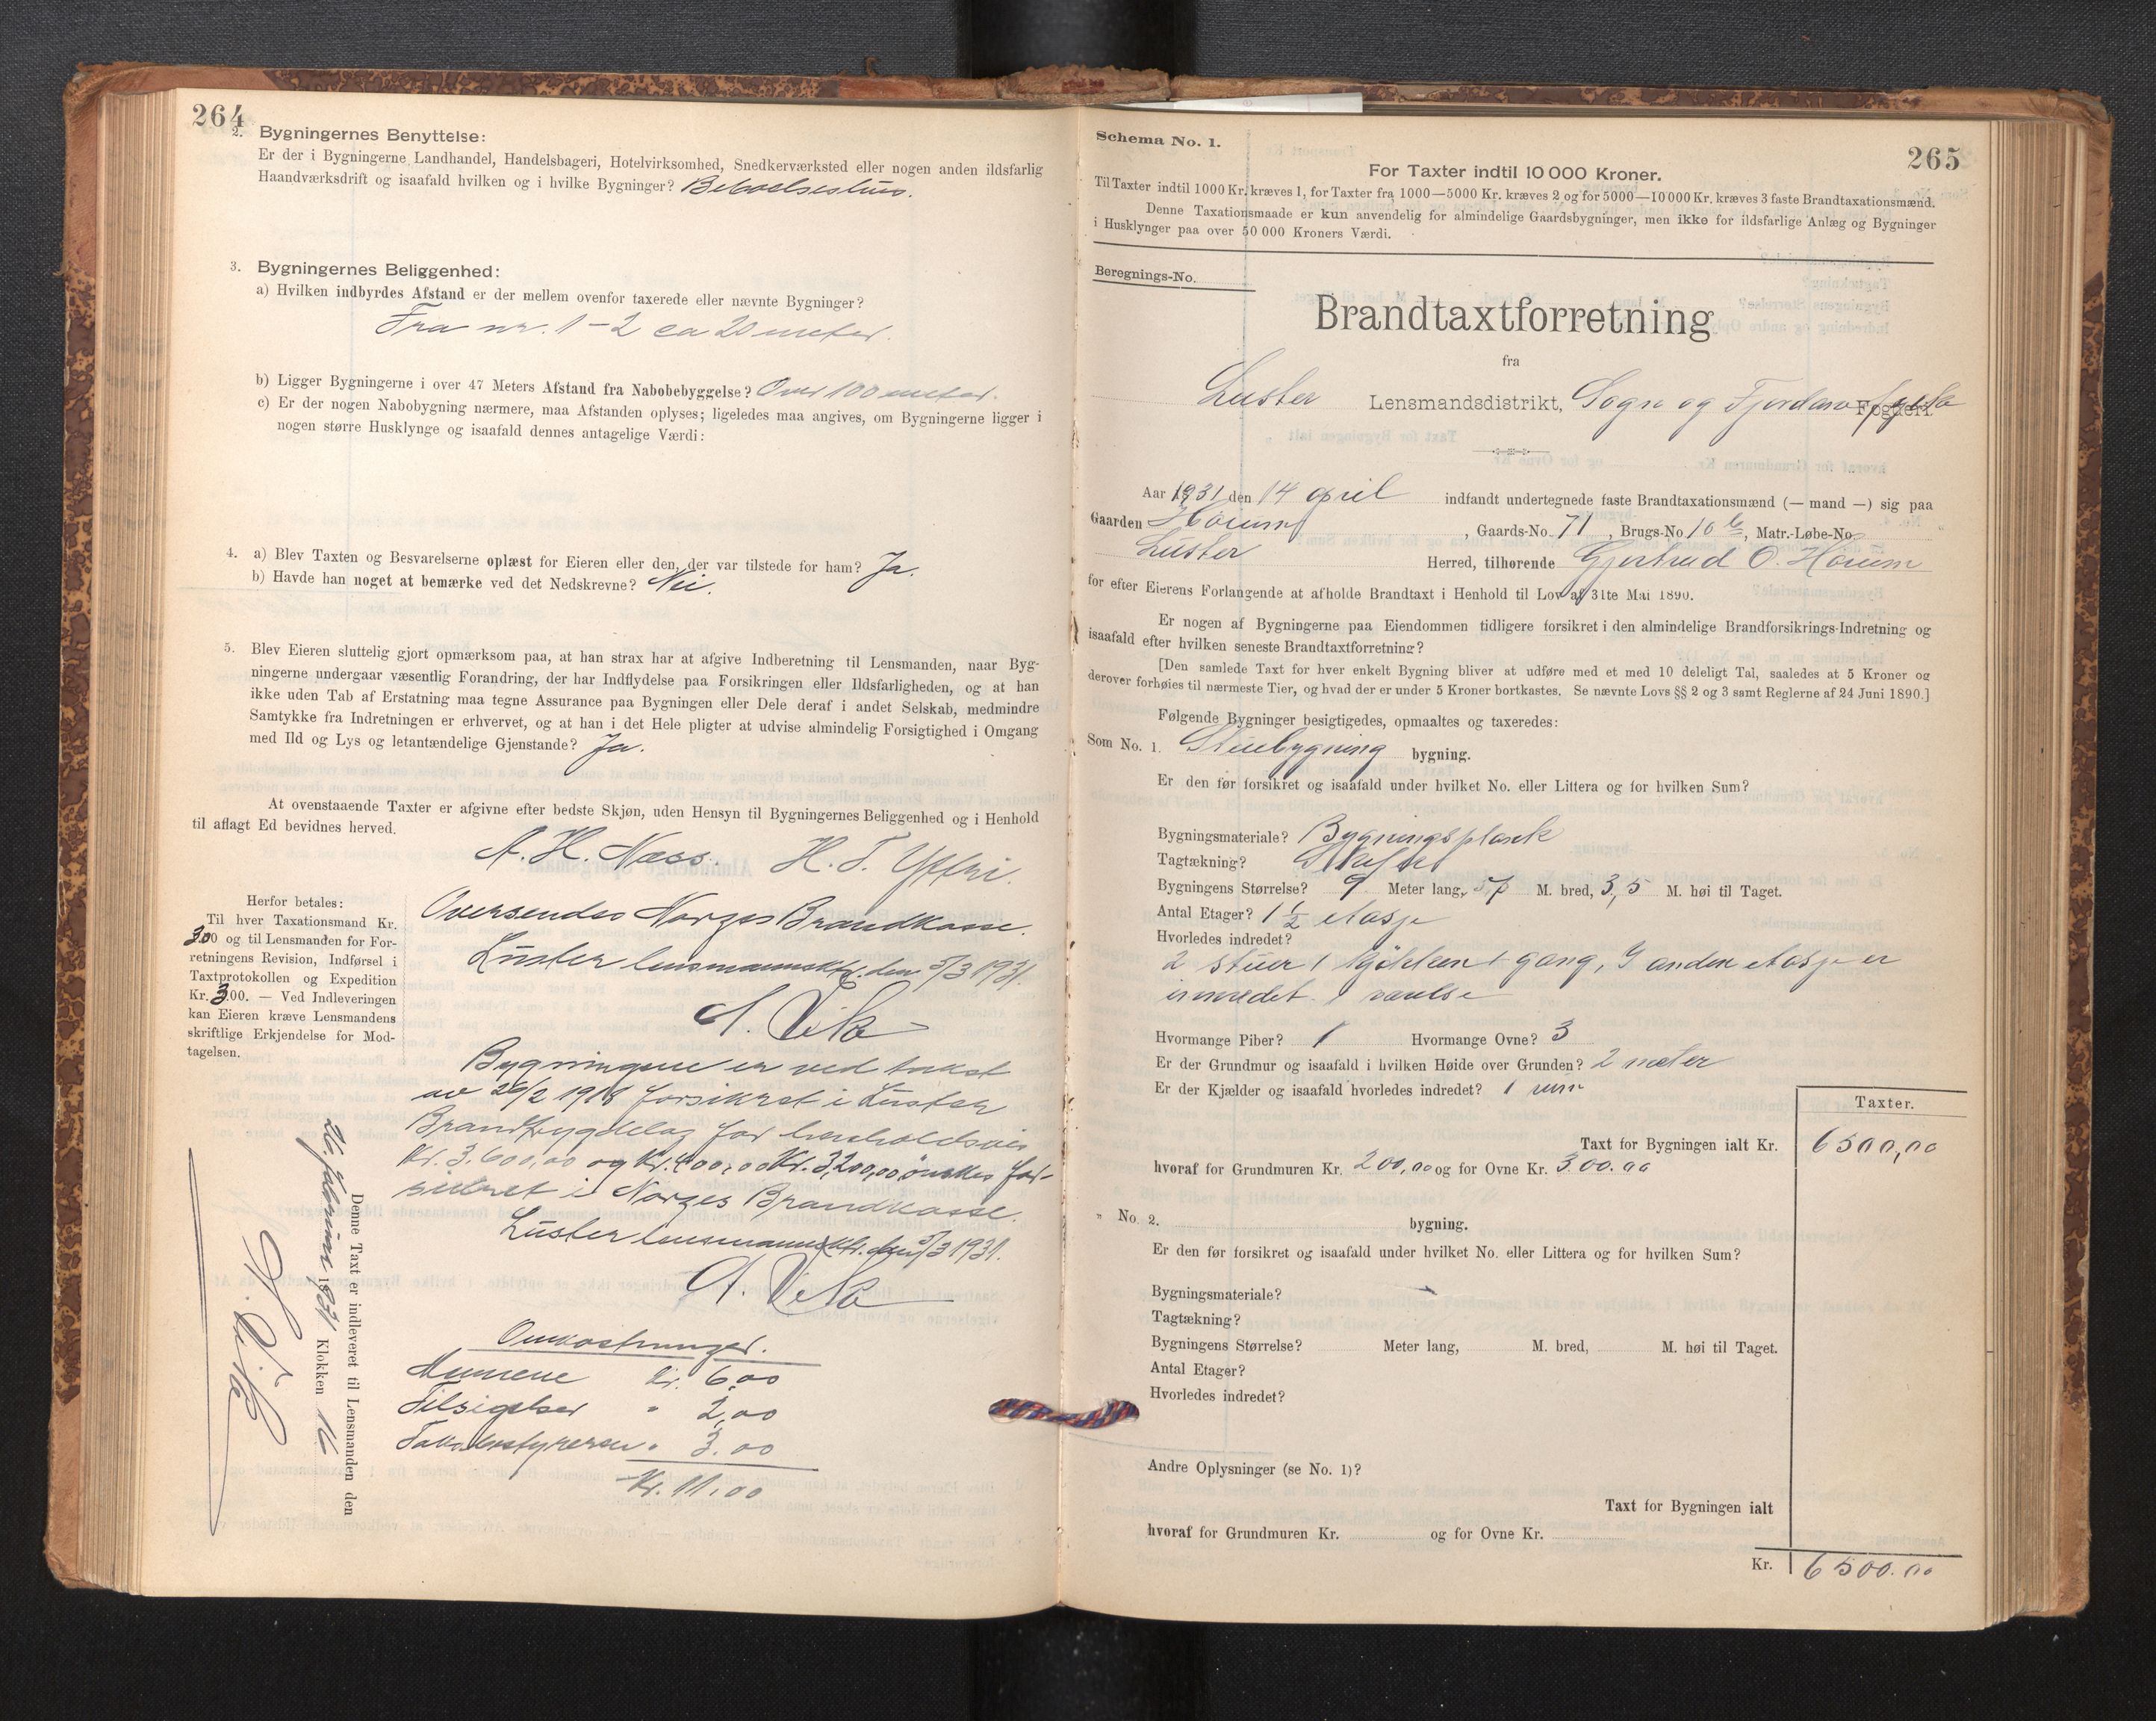 264
2. Bygningernes Benyttelse:
Er der i Bygningerne Landhandel, Handelsbageri, Hotelvirksomhed, Snedkerværksted eller nogen anden ildsfarlig
Haandværksdrift og isaafald hvilken og i hvilke Bygninger? Beboelseshus.
3. Bygningernes Beliggenhed:
a) Hvilken indbyrdes Afstand er der mellem ovenfor taxerede eller nævnte Bygninger?
Fra nr. 1-2 ca 20 meter.
b) Ligger Bygningerne i over 47 Meters Afstand fra Nabobebyggelse? Over 100 meter.
c) Er der nogen Nabobygning nærmere, maa Afstanden oplyses; ligeledes maa angives, om Bygningerne ligger i
nogen større Husklynge og isaafald dennes antagelige Værdi:
4. a) Blev Taxten og Besvarelserne oplæst for Eieren eller den, der var tilstede for ham? Ja.
b) Havde han noget at bemærke ved det Nedskrevne? Nei.
5. Blev Eieren sluttelig gjort opmærksom paa, at han strax har at afgive Indberetning til Lensmanden, naar Byg-
ningerne undergaar væsentlig Forandring, der har Indflydelse paa Forsikringen eller Ildsfarligheden, og at han
ikke uden Tab af Erstatning maa tegne Assurance paa Bygningen eller Dele deraf i andet Selskab, medmindre
Samtykke fra Indretningen er erhvervet, og at han i det Hele pligter at udvise almindelig Forsigtighed i Omgang
med Ild og Lys og letantændelige Gjenstande? Ja.
At ovenstaaende Taxter er afgivne efter bedste Skjøn, uden Hensyn til Bygningernes Beliggenhed og i Henhold
til aflagt Ed bevidnes herved.
A. H. Næss. H. T. Yttri.
Herfor betales:
Til hver Taxationsmand Kr.
3.00 og til Lensmanden for For-
retningens Revision, Indførsel i
Taxtprotokollen og Expedition
Kr. 3.00. — Ved Indleveringen
kan Eieren kræve Lensmandens
skriftlige Erkjendelse for Mod-
tagelsen.
Oversendes Norges Brandkasse.
Luster lensmannsktr. den 5/3 1931.
Bygningene er ved takst
av 26/2 1918 forsikret i Luster
Brandbygdelag for henholdsvis
Kr. 3.600,00 og Kr. 400,00 Kr. 3,200,00 ønskes for-
sikret i Norges Brandkasse.
Luster lensmannsktr. den 5/3 1931.
Omkostninger.
Mennene kr. 6,00
Tilsigelser " 2,00
" 3.00
Kr. 11.00
Denne Taxt er indleveret til Lensmanden den
26. februar 1931 Klokken 16
265
Schema No. 1.
For Taxter indtil 10 000 Kroner.
Til Taxter indtil 1000 Kr. kræves 1, for Taxter fra 1000—5000 Kr. kræves 2 og for 5000—10 000 Kr. kræves 3 faste Brandtaxationsmænd.
Denne Taxationsmaade er kun anvendelig for almindelige Gaardsbygninger, men ikke for ildsfarlige Anlæg og Bygninger
i Husklynger paa over 50 000 Kroners Værdi.
Beregnings-No.
Brandtaxtforretning
fra
Luster Lensmandsdistrikt, Sogn og Fjordane fylke Fogderi.
Aar 1931 den 14 april indfandt undertegnede faste Brandtaxationsmænd (— mand —) sig paa
Gaarden Høium, Gaards-No. 71, Brugs-No 10 b, Matr.-Løbe-No.
Luster Herred, tilhørende Gjertrud O. Høium
for efter Eierens Forlangende at afholde Brandtaxt i Henhold til Lov af 31te Mai 1890.
Er nogen af Bygningerne paa Eiendommen tidligere forsikret i den almindelige Brandforsikrings-Indretning og
isaafald efter hvilken seneste Brandtaxtforretning?
[Den samlede Taxt for hver enkelt Bygning bliver at udføre med et med 10 deleligt Tal, saaledes at 5 Kroner og
derover forhøies til nærmeste Tier, og hvad der er under 5 Kroner bortkastes. Se nævnte Lovs §§ 2 og 3 samt Reglerne af 24 Juni 1890.]
Følgende Bygninger besigtigedes, opmaaltes og taxeredes:
Som No. 1. Stuebygning bygning.
Er den før forsikret og isaafald under hvilket No. eller Littera og for hvilken Sum?
Bygningsmateriale? Bygningsplank
Tagtækning? Skifer
Bygningens Størrelse? 9 Meter lang, 5,7 M. bred, 3,5 M. høi til Taget.
Antal Etager? 1 1/2 etasje
Hvorledes indredet?
2 stuer 1 kjøkken 1 gang, I anden etasje er
innredet 1 værelse
Hvormange Piber? 1 Hvormange Ovne? 3
Er der Grundmur og isaafald i hvilken Høide over Grunden? 2 meter
Er der Kjælder og isaafald hvorledes indredet? 1 rum
Taxter.
Taxt for Bygningen ialt Kr. 6500,00
hvoraf for Grundmuren Kr. 200,00 og for Ovne Kr. 300.00
" No. 2. bygning.
Er den før forsikret og isaafald under hvilket No. eller Littera og for hvilken Sum?
Bygningsmateriale?
Tagtækning?
Bygningens Størrelse? Meter lang, M. bred, M. høi til Taget.
Antal Etager?
Hvorledes indredet?
Andre Oplysninger (se No. 1)?
Taxt for Bygningen ialt
hvoraf for Grundmuren Kr. og for Ovne Kr.
Kr. 6500.00